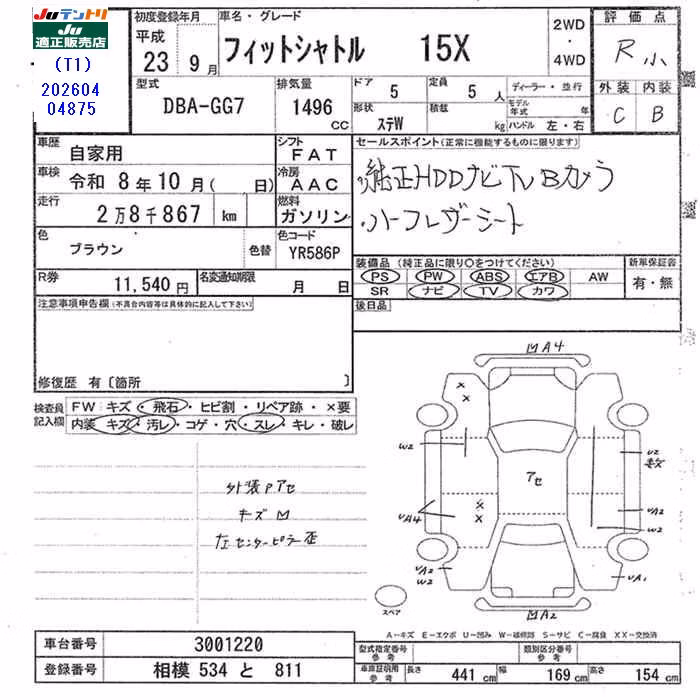 Juテントリ
JU適正販売店
(T1)
202604
04875
初度登録年月
平成
23 9月
車名・グレード
フィットシャトル 15X
2WD
・
4WD
評価点
R 小
外装 内装
C B
型式
DBA-GG7
排気量
1496
CC
ドア 5
定員 5 人
形状 ステW
積載 kg
ディーラー・並行
モデル年式 年
ハンドル 左・右
車歴
自家用
シフト
FAT
車検
令和 8年10月( 日)
冷房
AAC
走行
2万8千867 km
燃料
ガソリン
色
ブラウン
色替
色コード
YR586P
R券
11,540円
名変通知期限
月 日
セールスポイント(正常に機能するものに限ります)
純正HDDナビTV Bカメラ
ハーフレザーシート
装備品(純正品に限り〇をつけてください)
PS PW ABS エアB AW
SR ナビ TV カワ
新車保証書
有・無
後日品
注意事項申告欄(不具合内容等は具体的に記入して下さい)
修復歴 有〔箇所 〕
検査員
記入欄
FW キズ・飛石・ヒビ割・リペア跡・×要
内装 キズ・汚レ・コゲ・穴・スレ・キレ・破レ
外装Pアセ
キズ凹
左センターピラー歪
凹A4
W2
アセ
U2
数
UA4
UA2
W2
UA2
W2
UA1
凹A2
スペア
A-キズ E-エクボ U-凹み W-補修跡 S-サビ C-腐食 XX-交換済
車台番号
3001220
登録番号
相模 534 と 811
型式指定番号
参考
類別区分番号
参考
車庫証明用
参考
長さ 441 cm 幅 169 cm 高さ 154 cm